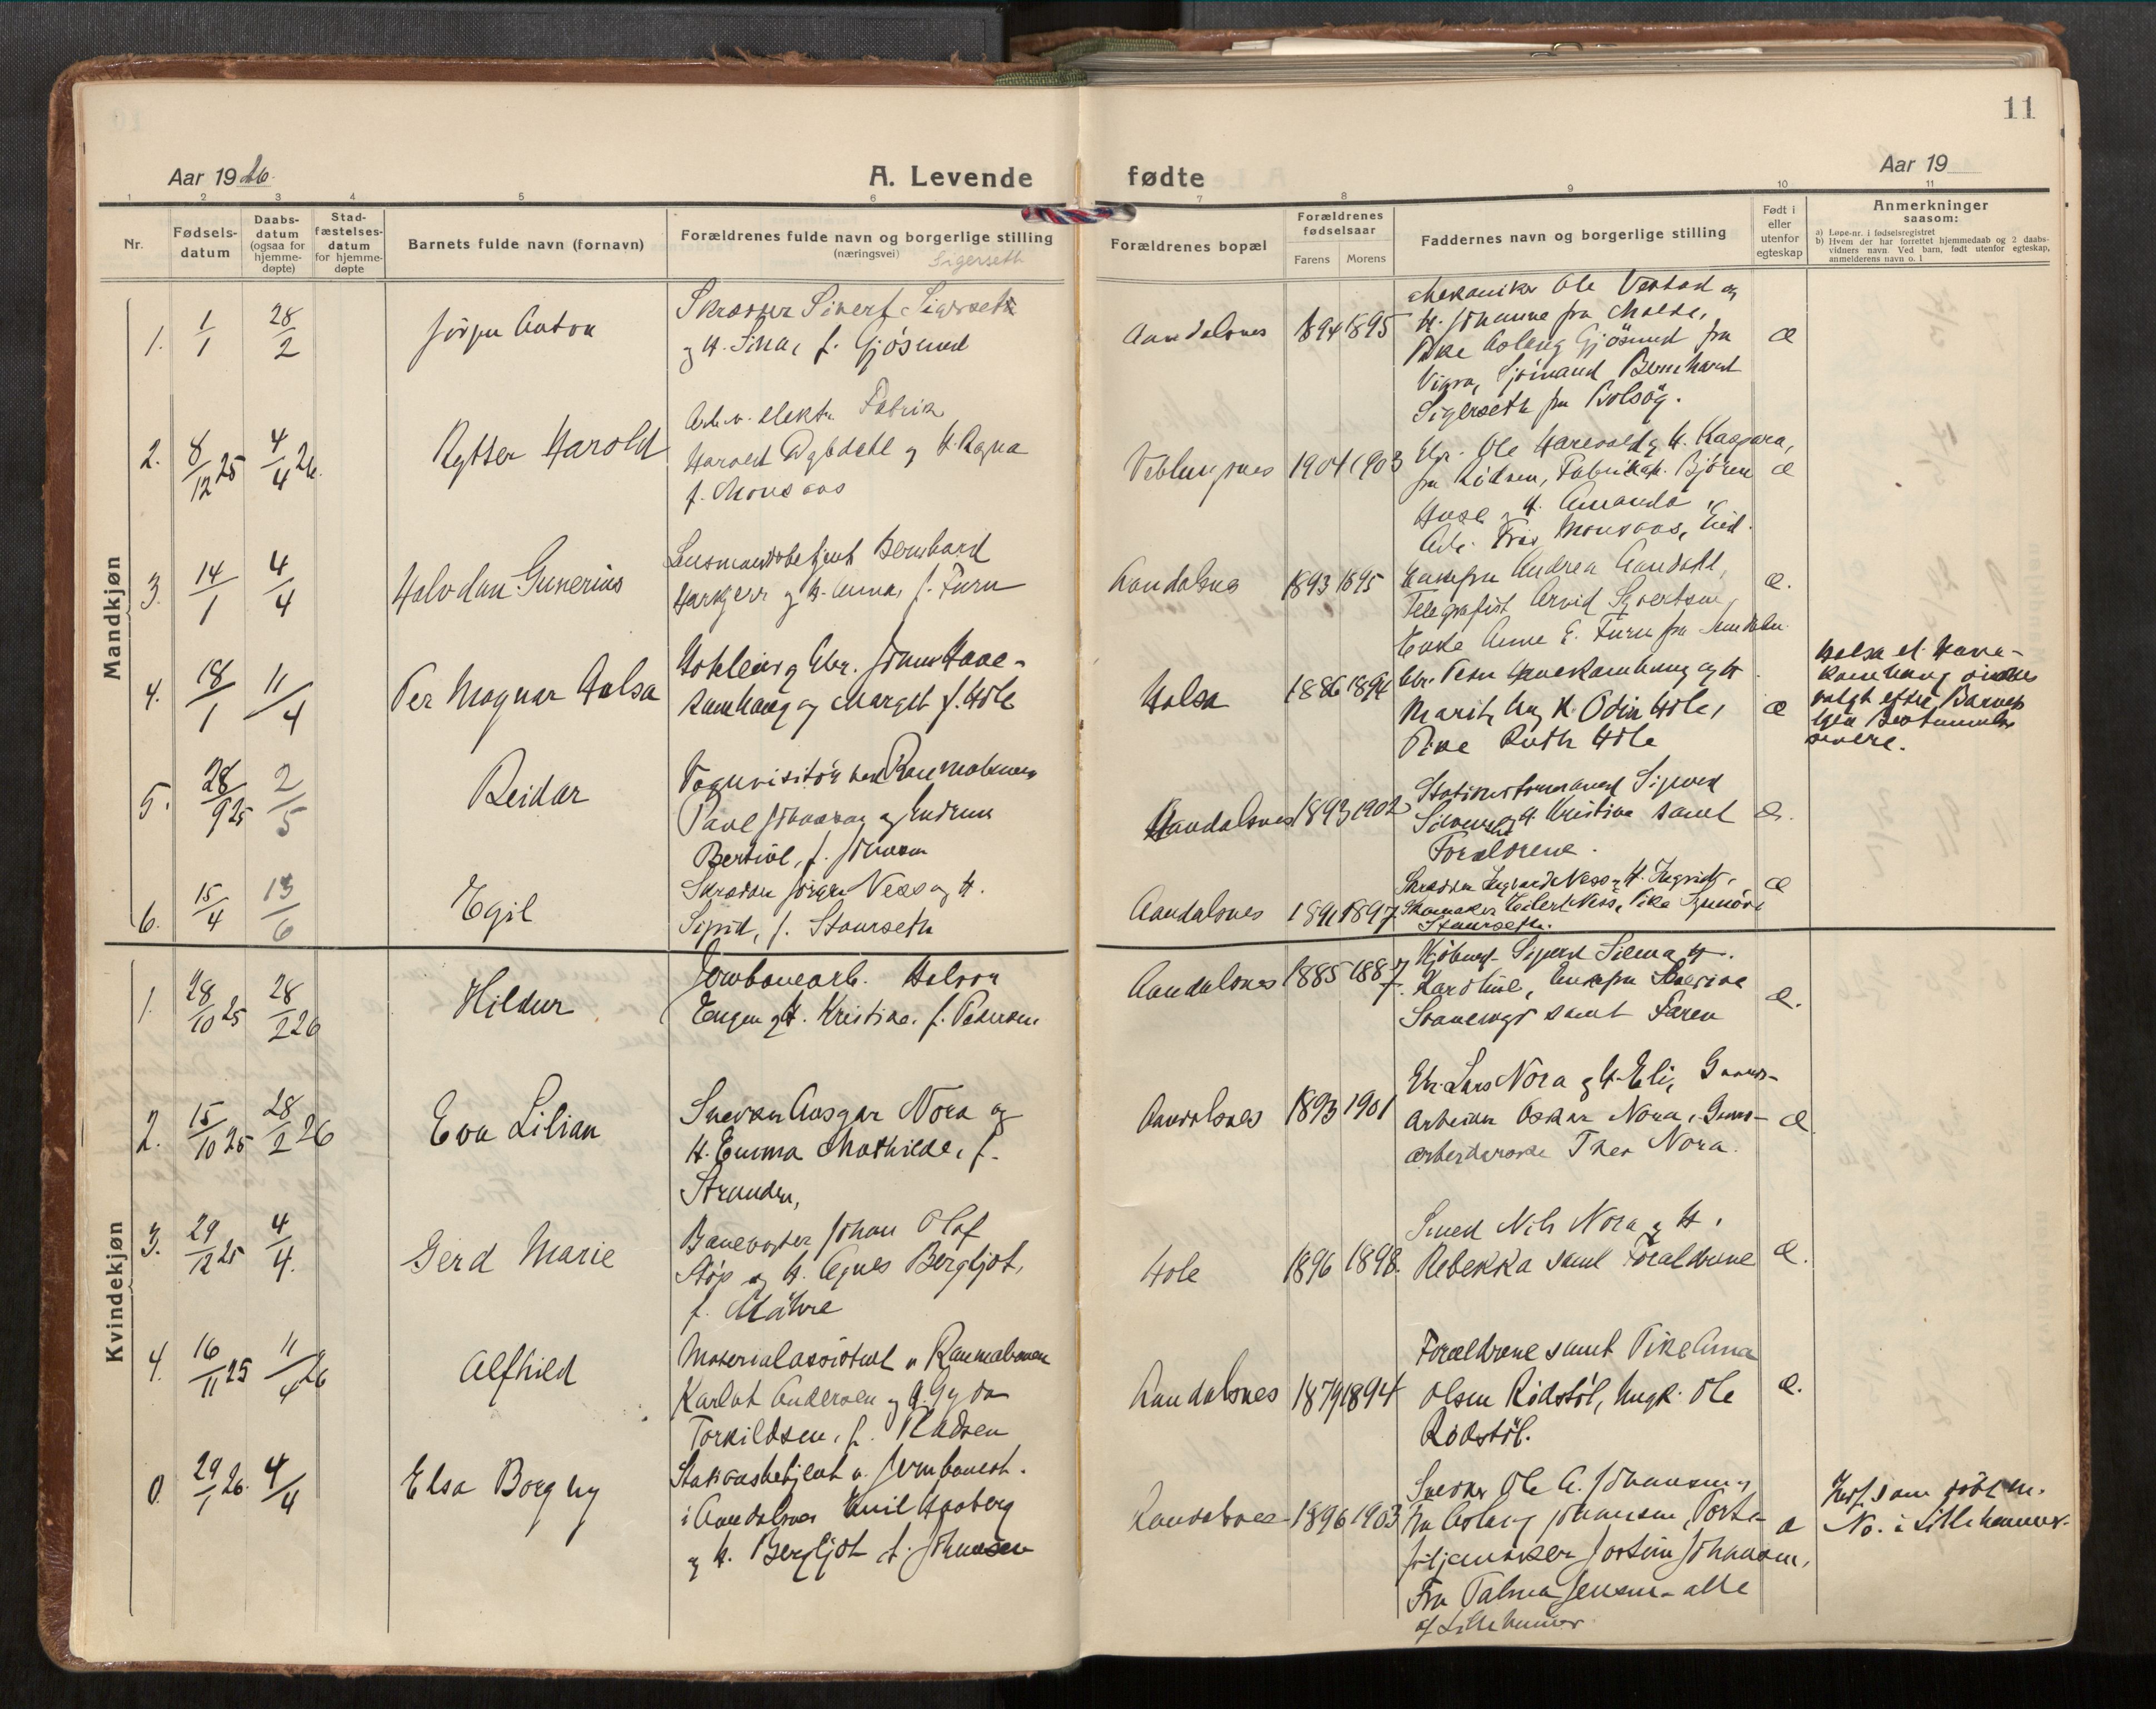 11
Aar 1926.
A. Levende
fødte
Aar 19
1 2 3 4 5 6 7 8 9 10 11
Nr.
Fødsels-
datum
Daabs-
datum
(ogsaa for
hjemme-
døpte)
Stad-
fæstelses-
datum
for hjemme-
døpte
Barnets fulde navn (fornavn)
Forældrenes fulde navn og borgerlige stilling
(næringsvei)
Sigerseth
Forældrenes bopæl
Forældrenes
fødselsaar
Farens Morens
Faddernes navn og borgerlige stilling
Født i
eller
utenfor
egteskap
Anmerkninger
saasom:
a) Løpe-nr. i fødselsregistret
b) Hvem der har forrettet hjemmedaab og 2 daabs-
vidners navn. Ved barn, født utenfor egteskap,
anmelderens navn o. l
Mandkjøn
1. 1/1 28/2
Jörgen Anton
Skrædder Sivert
og H. Sina, f. Gjösund
Aandalsnes 1894 1895
Mekaniker Ole Vestad og
H. Johanne fra Molde,
Pike Aslaug Gjösund fra
Vigra, Sjömand Bernhard
Sigerseth fra Bolsöy.
æ
2. 8/12 25 4/4 26.
Rytter Harold
Arb. v. elektr. Fabrik
Harold Rypdahl og H. Ragna
f. Monsaas
Veblungsnes 1904 1903
Gbr. Ole Harevold og H. Kaspara,
fra Rödven, Fabrikarb. Björn
Huse og H. Amanda
Arb. Monsaas, Eid.
æ
3. 14/1 4/4
Halvdan Gunerius
Lensmandsbetjent Bernhard
Harkjerr og H. Anna, f. Furu
Aandalsnes 1893 1895
Enkefru Andrea Aandahl,
Telegrafist Arvid Syvertsen,
Enke Anne E. Furu fra
æ.
4. 18/1 11/4
Per Magnar Halsa
og Gbr. Johan Haae-
kamhaug og Marget f. Hole
Halsa 1886 1894
Gbr. Peder Haaekamhaug og H.
Marit, Ung K. Odin Hole,
Pike Ruth Hole
æ
Halsa el. Haae-
kamhaug
valgt efter Barnets
egen Bestemmelse
senere.
5. 28/9 25 2/5
Reidar
Vognvisitör ved Raumabanen
Paul Johansen og Hustru
Bertine, f. Johnsen
Aandalsnes 1893 1902
Stationsformand Sigurd
og H. Kristine samt
Forældrene.
æ.
6. 15/4 13/6
Egil
Skrædder Jörgen Ness og H.
Sigrid, f. Staurseth
Aandalsnes 1891 1897
Skrædder Ingvard Ness og H. Ingrid,
Skomaker Eilert Ness, Pike Synnöve
Staurseth.
æ
Kvindekjøn
1. 28/10 25 28/2 26
Hildur
Jernbanearb. Halvor
Engen og H. Kristine, f. Pedersen
Aandalsnes 1885 1887
Kjöbmd. Sigurd Silema og H.
Karoline, Enkefru Severine
samt Faren
æ.
2. 15/10 25 28/2 26
Eva Lilian
Snedker Ansgar Nora og
H. Emma Mathilde, f.
Stranden,
Aandalsnes 1893 1901
Gbr. Lars Nora og H. Eli, Grovar-
arbeider Oskar Nora,
arbeiderske Thea Nora.
æ.
3. 29/12 25 4/4.
Gerd Marie
Banevogter Johan Olaf
Stöp og H. Agnes Bergljot,
f. Mähre
Hole 1896 1898.
Smed Nils Nora og H.
Rebekka samt Forældrene
æ.
4. 16/11 25 11/4 26
Alfhild
Materialassistent v. Raumabanen
Karlot Andersen og H. Gyda
Torkildsen, f. Madsen
Aandalsnes 1879 1894
Forældrene samt Pike Anna
Olsen Rödstöl, Ungk. Ole
Rödstöl.
æ.
0. 29/1 26. 4/4
Elsa Borgny
Stationsbetjent v. Jernbanest.
i Aandalsnes Emil Haaberg
og H. Bergljot f. Johansen
Aandalsnes 1896 1903
Snedker Ole A. Johansen,
Fru Aslaug Johansen, Porte-
följemaker Jostein Johansen,
Fru Talma Jensen - alle
af Lillehammer
æ
Indf. som födt m.
No. i Lillehammer.